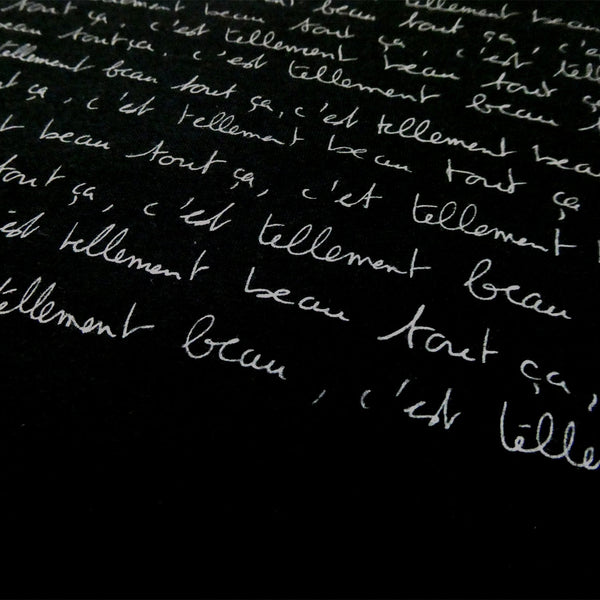 tellement beau
tellement beau tout ça, c'es
beau tout ça. c'est tellement beau tout ça, c'est tell
beau tout ça. c'est tellement beau tout ça
tellement beau tout ça, c'est tellement beau
ça, c'est tellement beau tout ça
beau tout ça, c'est tellement
tout ça, c'est tellement beau
est tellement beau tout ça,
tellement beau, c'est telle